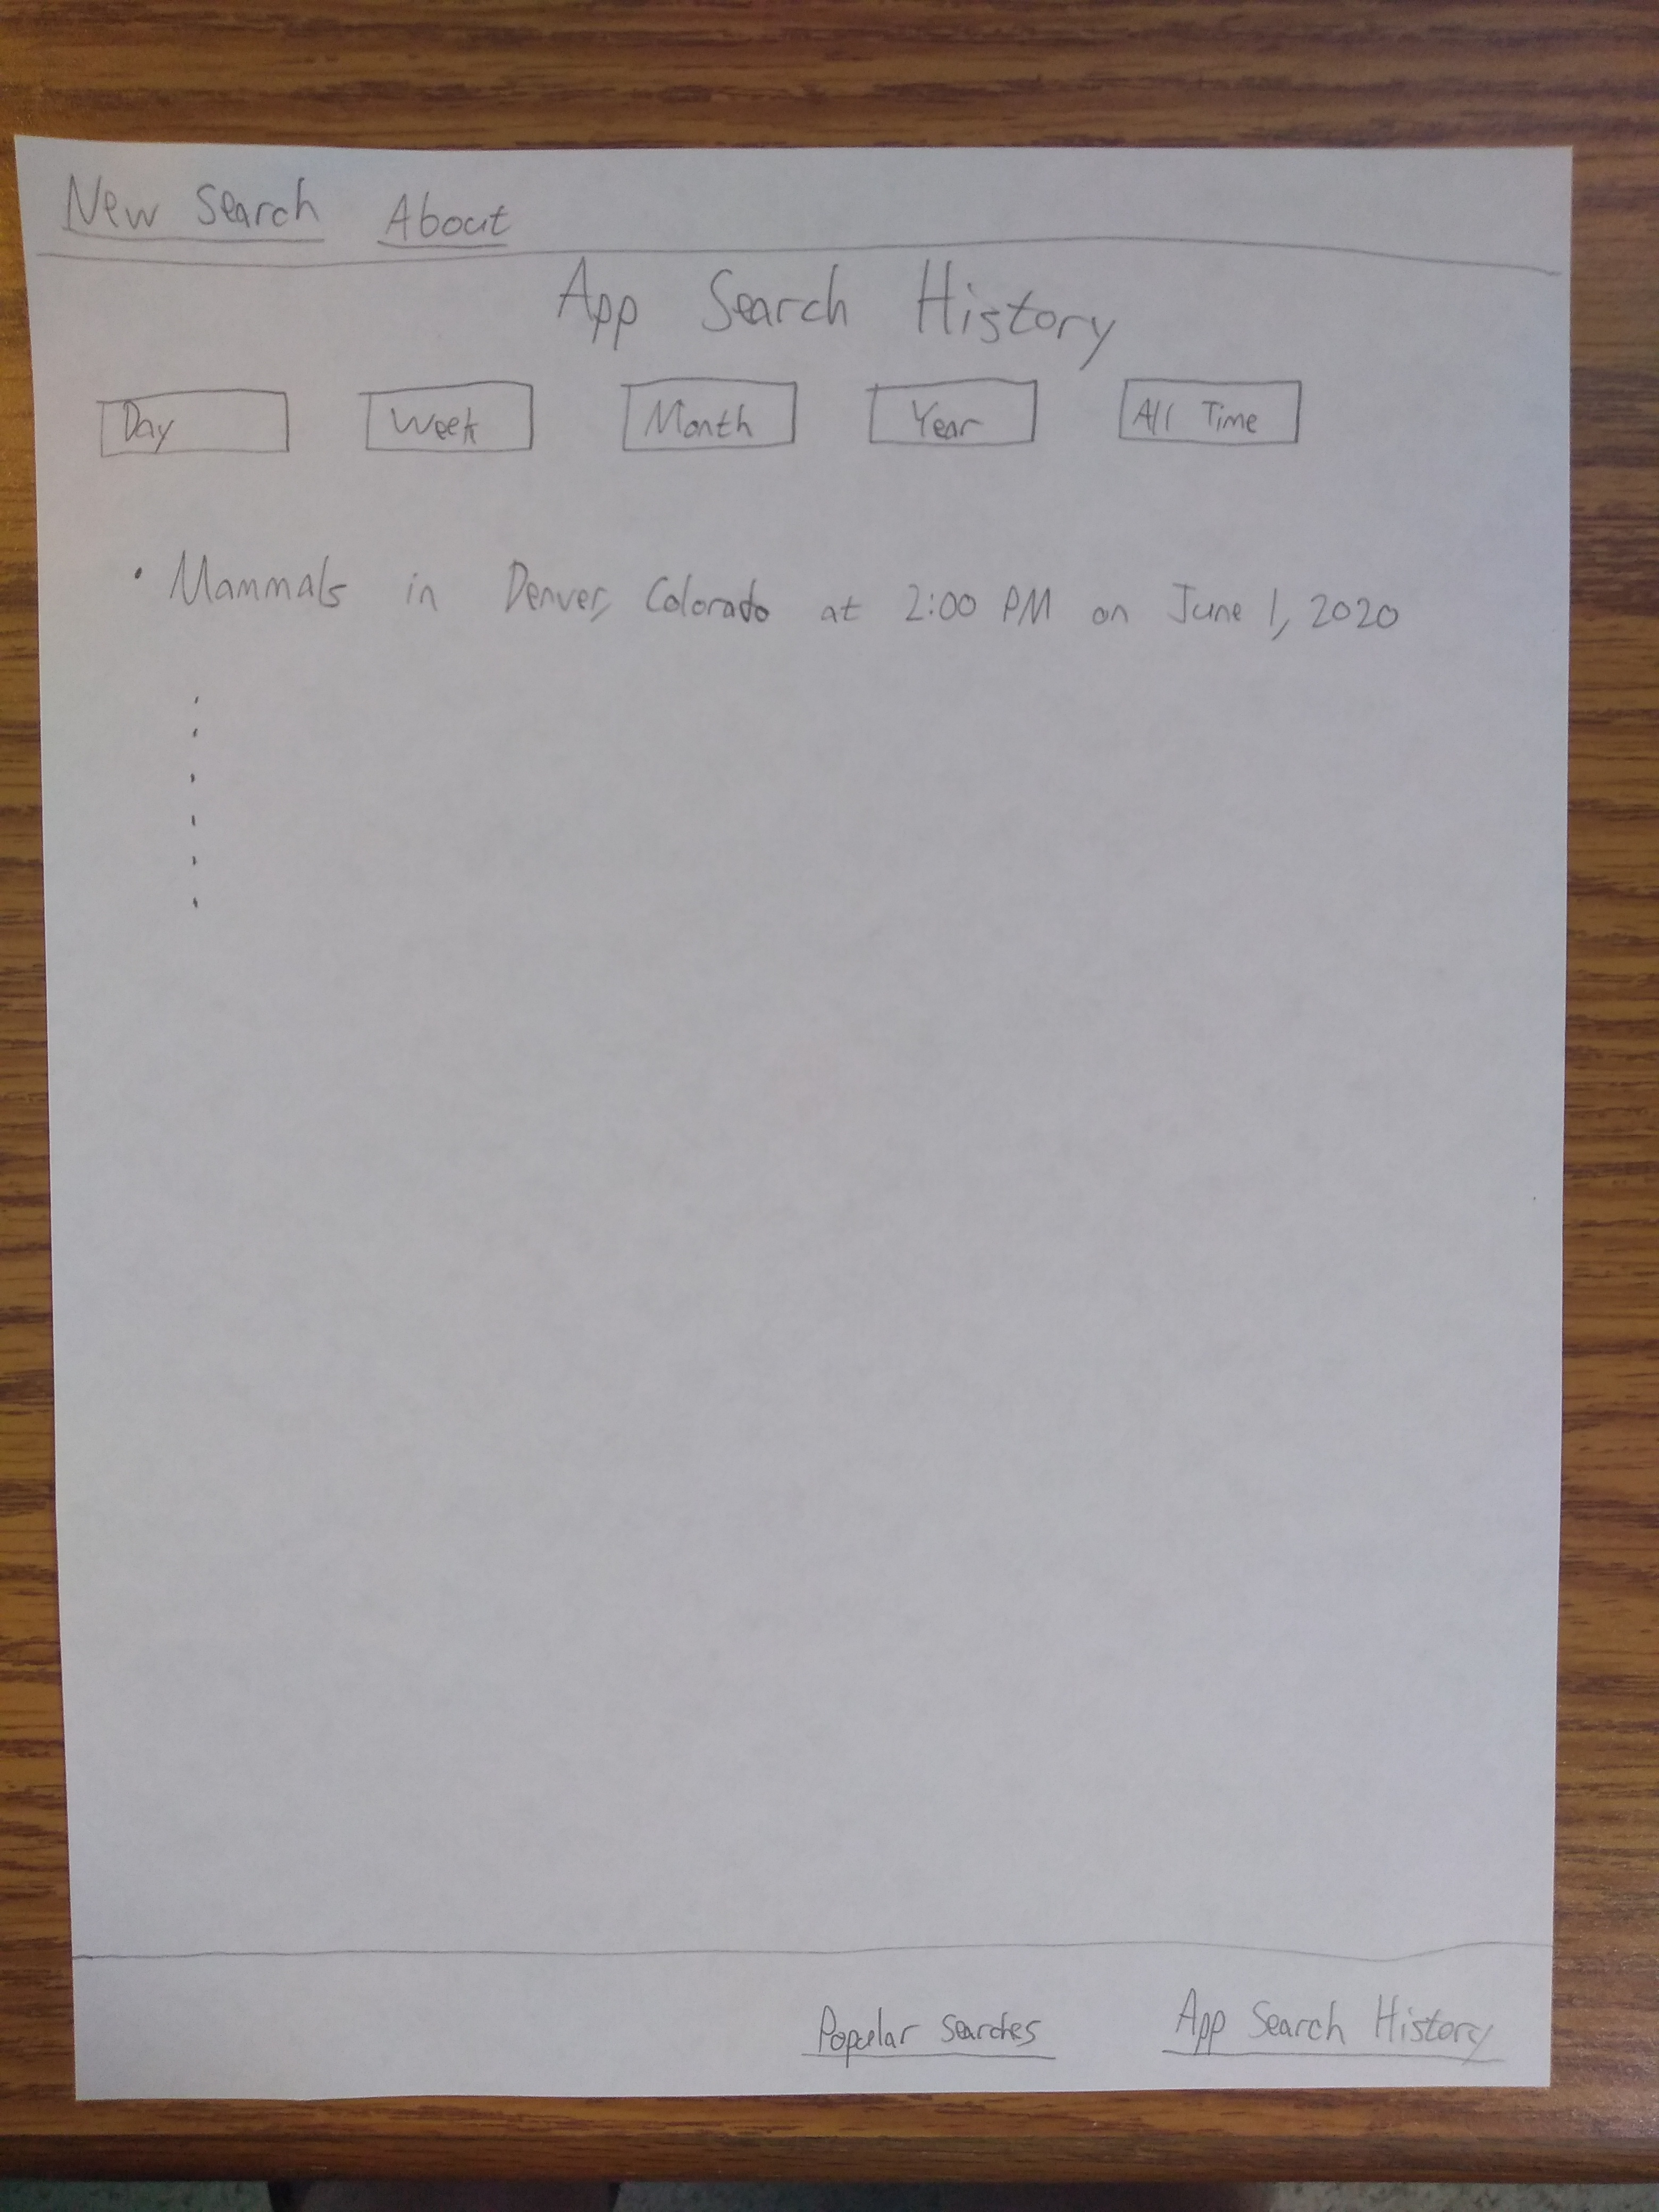 New Search About
App Search History
Day Week Month Year All Time
• Mammals in Denver, Colorado at 2:00 PM on June 1, 2020
Popular Searches App Search History